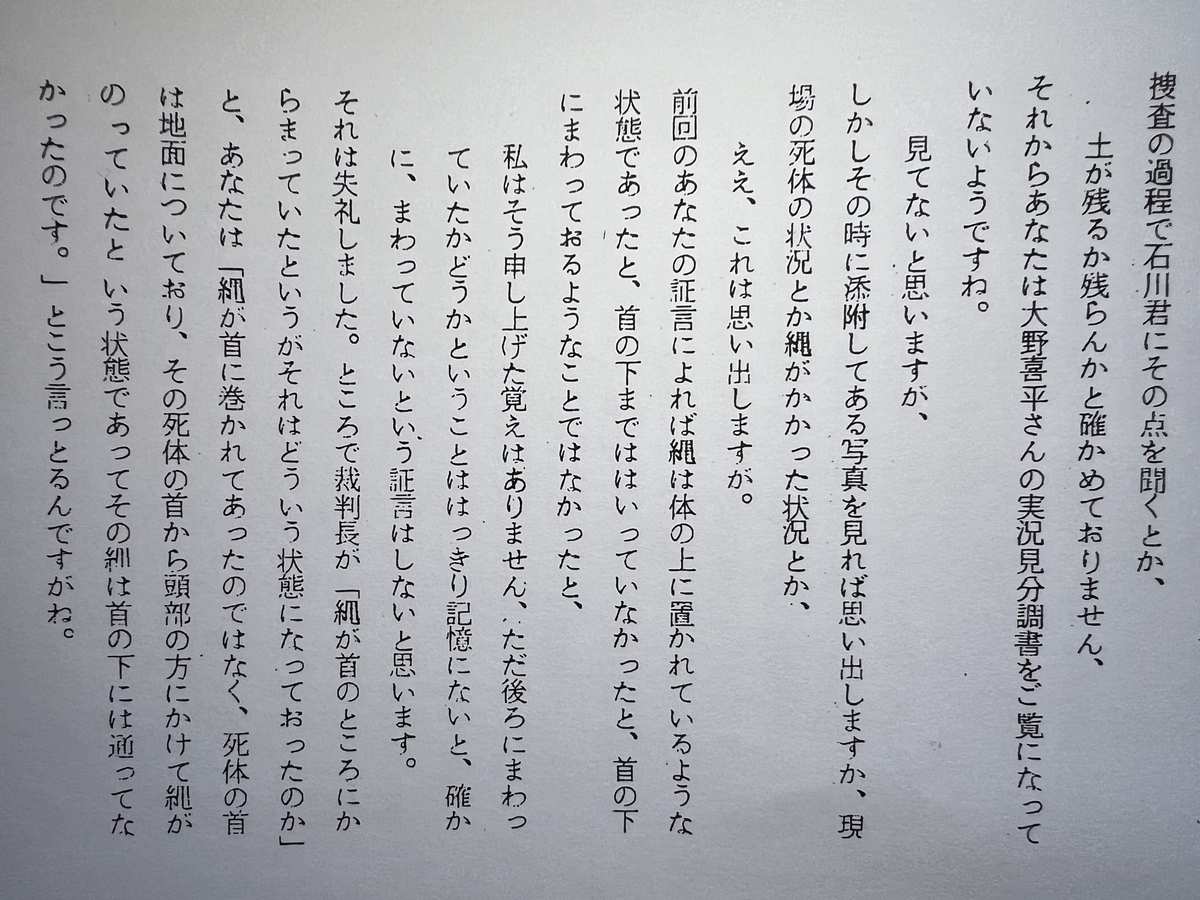 捜査の過程で石川君にその点を聞くとか、
土が残るか残らんかと確かめておりません、
それからあなたは大野喜平さんの実況見分調書をご覧になって
いないようですね。
見てないと思いますが、
しかしその時に添附してある写真を見れば思い出しますか、現
場の死体の状況とか縄がかかった状況とか、
ええ、これは思い出しますが。
前回のあなたの証言によれば縄は体の上に置かれているような
状態であったと、首の下まではいっていなかったと、首の下
にまわっておるようなことではなかったと、
私はそう申し上げた覚えはありません、ただ後ろにまわっ
ていたかどうかということははっきり記憶にないと、確か
に、まわっていないという証言はしないと思います。
それは失礼しました。ところで裁判長が「縄が首のところにか
らまっていたというがそれはどういう状態になっておったのか」
と、あなたは「縄が首に巻かれてあったのではなく、死体の首
は地面についており、その死体の首から頭部の方にかけて縄が
のっていたと いう状態であってその縄は首の下には通ってな
かったのです。」とこう言っとるんですがね。